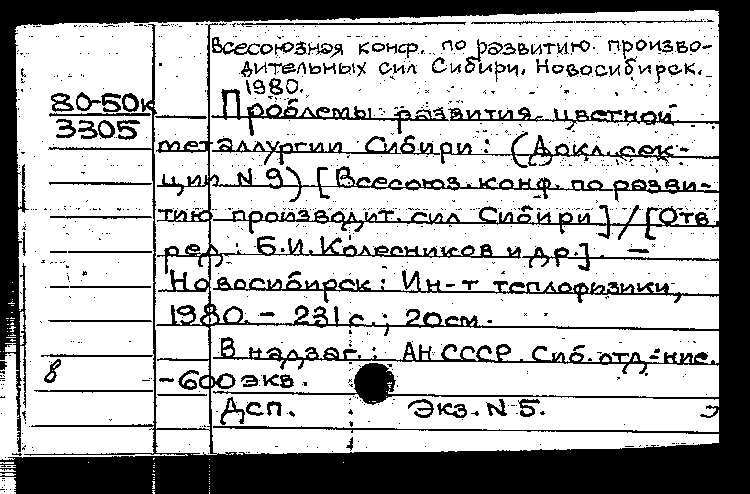 Всесоюзная конф. по развитию произво-
дительных сил Сибири. Новосибирск.
1980.
80-50к
3305
Проблемы развития цветной
металлургии Сибири: (Докл. сек-
ции N 9) [Всесоюз. конф. по разви-
тию производит. сил Сибири] / [Отв.
ред.: Б.И. Колесников и др.]. —
Новосибирск: Ин-т теплофизики,
1980. - 231 с.; 20 см.
В надзаг.: АН СССР. Сиб. отд-ние.
8
-600 экз.
Дсп. Экз. N 5.